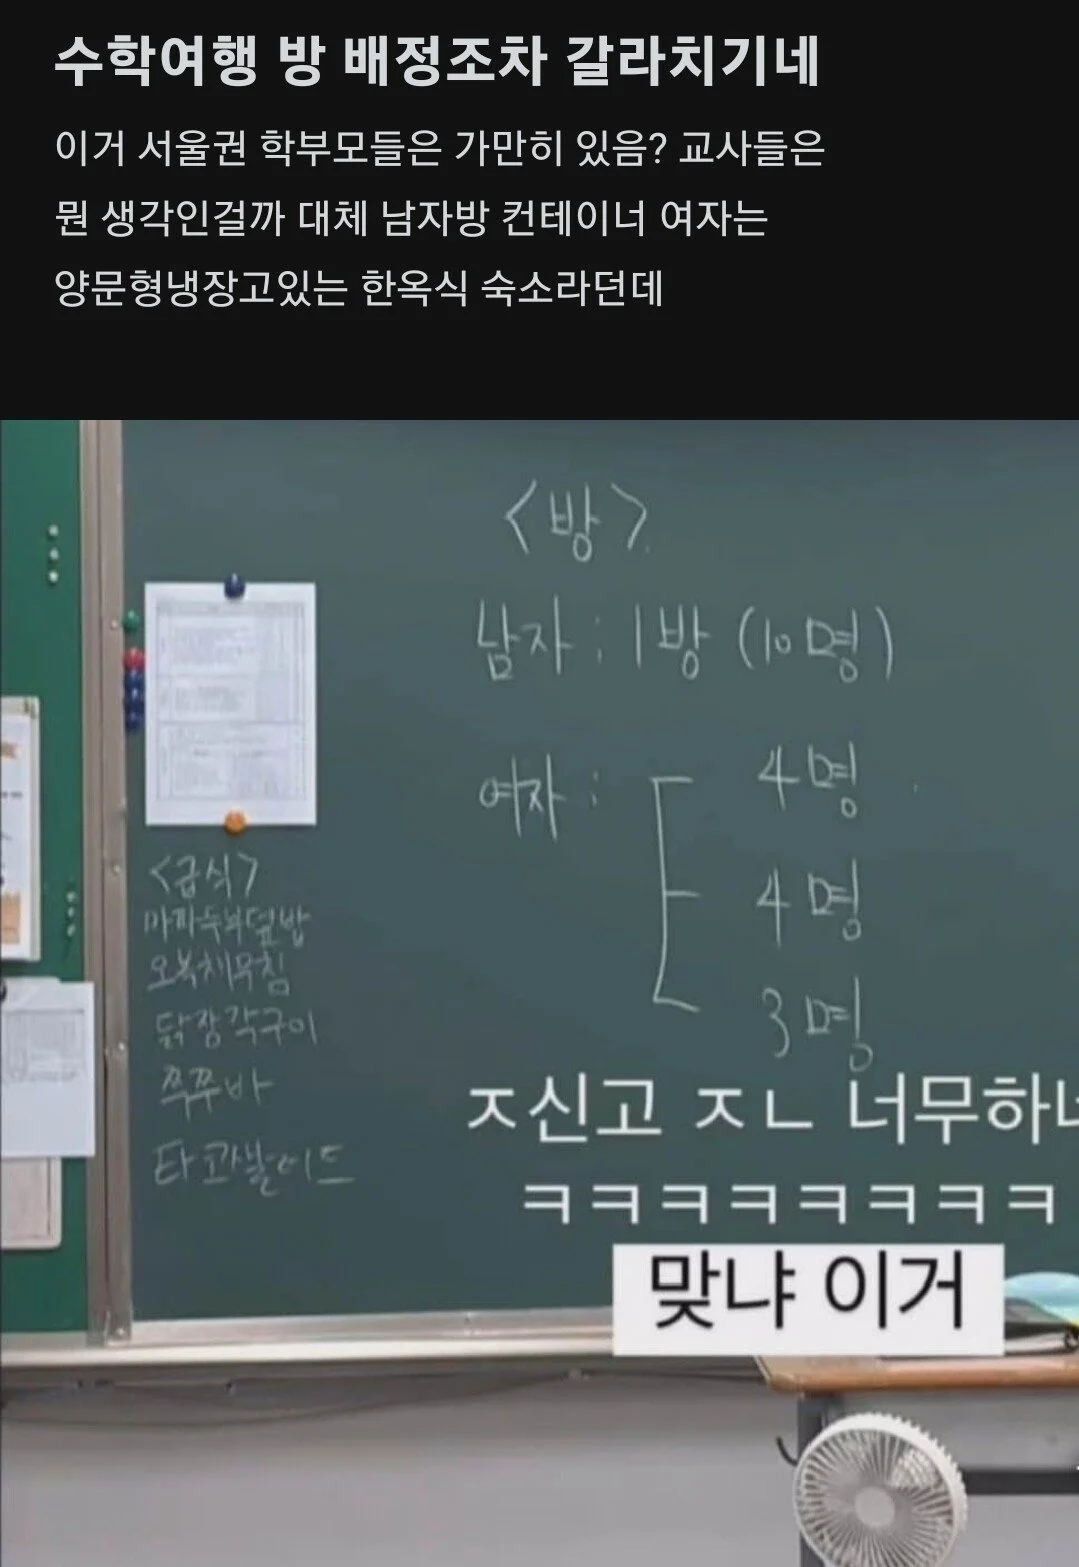 수학여행 방 배정조차 갈라치기네
이거 서울권 학부모들은 가만히 있음? 교사들은
뭔 생각인걸까 대체 남자방 컨테이너 여자는
양문형냉장고있는 한옥식 숙소라던데
<방>
남자 : 1방 (10명)
여자 : 4명
4명
3명
<급식>
마파두부덮밥
오복채무침
닭장각구이
쭉쭈바
타코라이스
ㅈ신고 ㅈㄴ 너무하네
ㅋㅋㅋㅋㅋㅋㅋㅋ
맞냐 이거